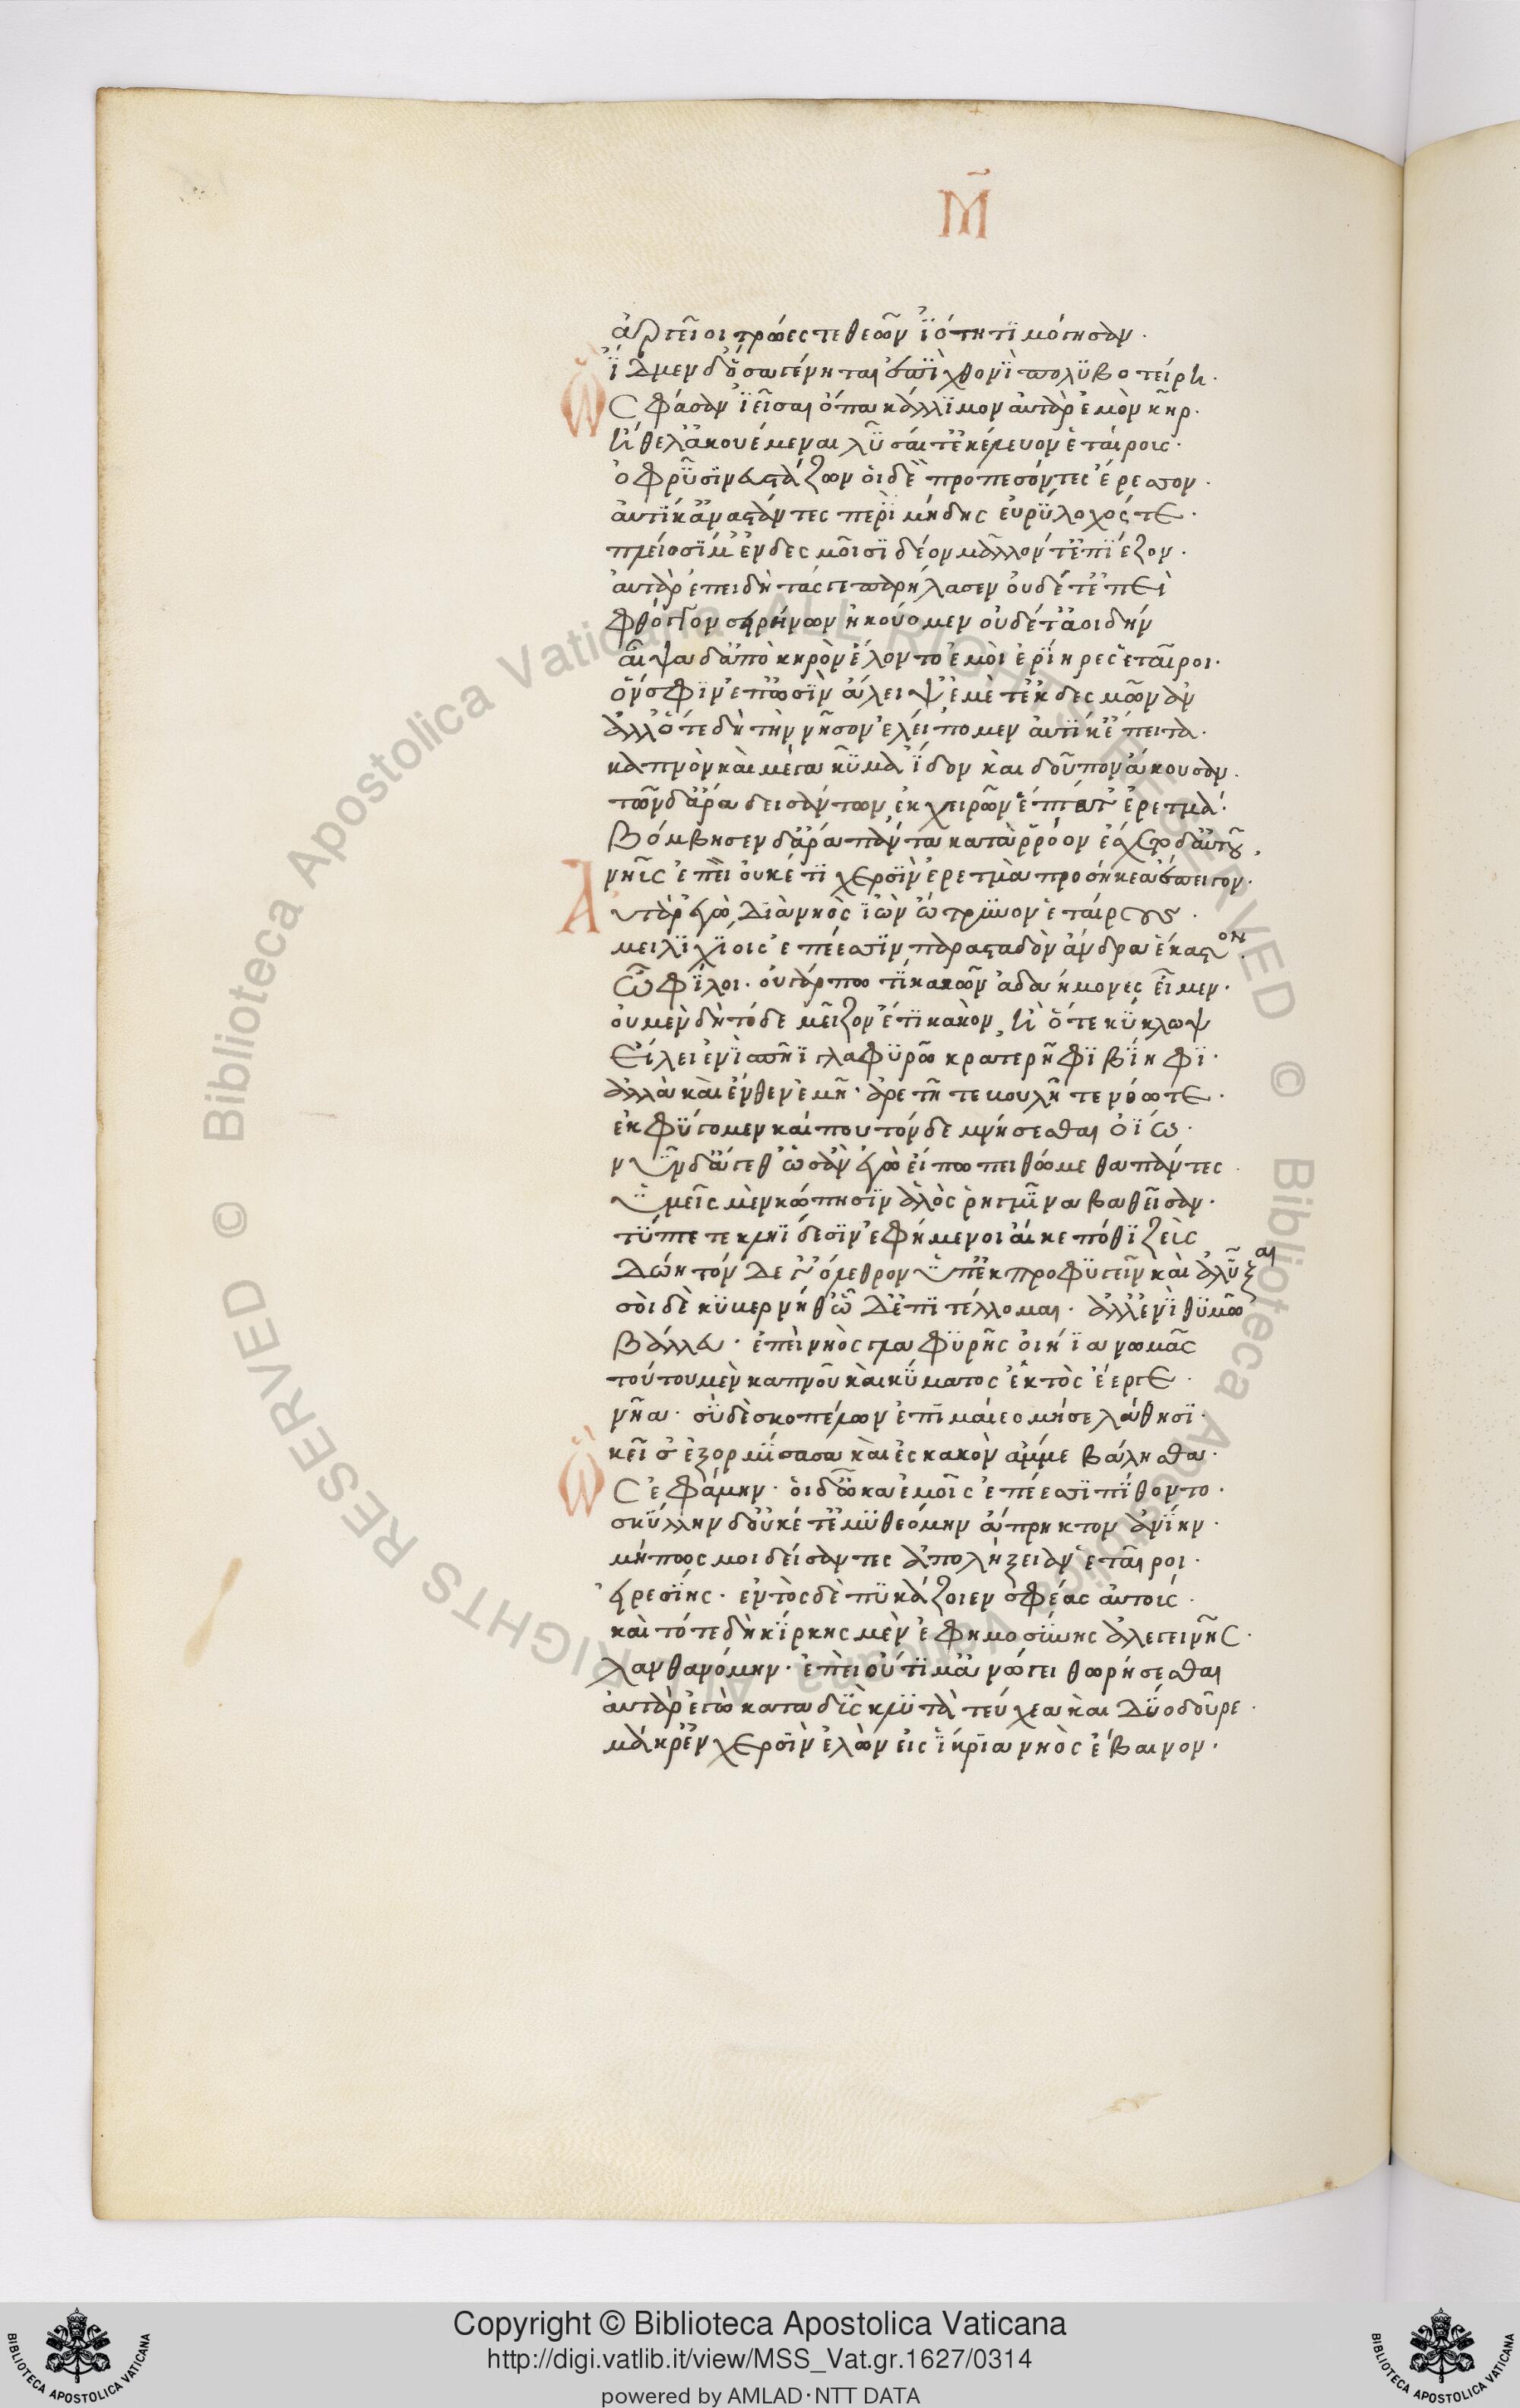 Μ̃
ἀργεῖοι τρῶές τε θεῶν ἰότητι μόγησαν·
ἴδμεν δ' ὅσσα γένηται ἐπὶ χθονὶ πολυβοτείρη·
Ὣς φάσαν ἱεῖσαι ὄπα κάλλιμον αὐτὰρ ἐμὸν κῆρ·
ἤθελ' ἀκουέμεναι λῦσαί τ' ἐκέλευον ἑταίροις·
ὀφρύσι νευστάζων οἱ δὲ προπεσόντες ἔρεσσον·
αὐτίκ' ἀναστάντες περιμήδης εὐρύλοχός τε·
πλείοσί μ' ἐν δεσμοῖσι δέον μᾶλλόν τ' ἐπίεζον·
αὐτὰρ ἐπειδὴ τάς γε παρήλασεν οὐδέ τ' ἔπει
φθόγγον σειρήνων ἠκούομεν οὐδέ τ' ἀοιδήν
αἶψα δ' ἀπὸ κηρὸν ἕλοντο ἐμοὶ ἐρίηρες ἑταῖροι·
ὅν σφιν ἐπ' ὠσὶν ἄλειψ' ἐμὲ τ' ἐκ δεσμῶν ἀν
ἀλλ' ὅτε δὴ τὴν νῆσον ἐλείπομεν αὐτίκ' ἔπειτα·
καπνὸν καὶ μέγα κῦμα ἴδον καὶ δοῦπον ἄκουσαν·
τῶν δ' ἄρα δεισάντων ἐκ χειρῶν ἔπτατ' ἐρετμά·
βόμβησεν δ' ἄρα πάντα κατὰ ῥρόον ἔσχετο δ' αὐτοῦ,
νηῦς ἐπεὶ οὐκέτι χερσὶν ἐρετμὰ προσήκεα ἔπειγον·
Αὐτὰρ ἐγὼ διὰ νηὸς ἰὼν ὤτρυνον ἑταίρους·
μειλιχίοις ἐπέεσσιν παρασταδὸν ἄνδρα ἕκαστον·
ὦ φίλοι· οὐ γάρ πω τι κακῶν ἀδαήμονες εἶμεν·
οὐ μὲν δὴ τόδε μεῖζον ἔτι κακὸν, ἢ ὅτε κύκλωψ
εἴλει ἐνὶ σπῆϊ γλαφυρῶ κρατερῆφι βίηφι·
ἀλλὰ καὶ ἔνθεν ἐμῆ· ἀρετῆ τε βουλῆ τε νόω τε·
ἐκφύγομεν καί που τόνδε μνήσεσθαι ὀΐω·
νῦν δ' ἄγεθ' ὡς ἂν ἐγὼ εἴπω πειθώμεθα πάντες·
ὑμεῖς μὲν κώπησιν ἁλὸς ῥηγμῖνα βαθεῖαν·
τύπτετε κληΐδεσιν ἐφήμενοι αἴ κε πόθι ζεὺς
δώη τόνδε γ' ὄλεθρον ὑπεκπροφυγεῖν καὶ ἀλῦξαι
σοὶ δὲ κυβερνήθ' ὧδ' ἐπιτέλλομαι· ἀλλ' ἐνὶ θυμῶ
βάλλευ· ἐπεὶ νηὸς γλαφυρῆς οἰήϊα νωμᾶς
τούτου μὲν καπνοῦ καὶ κύματος ἐκτὸς ἔεργε·
νῆα· σὺ δὲ σκοπέλων ἐπιμαίεο μή σε λάθησι·
κεῖσ' ἐξορμήσασα καὶ ἐς κακὸν ἄμμε βάλησθα·
Ὣς ἐφάμην· οἱ δ' ὦκα ἐμοῖς ἐπέεσσι πίθοντο·
σκύλλην δ' οὐκέτ' ἐμυθεόμην ἄπρηκτον ἀνίην·
μή πως μοι δείσαντες ἀπολήξειαν ἑταῖροι·
εἰρεσίης· ἐντὸς δὲ πυκάζοιεν σφέας αὐτούς·
καὶ τότε δὴ κίρκης μὲν ἐφημοσύνης ἀλεγεινῆς·
λανθανόμην· ἐπεὶ οὔτι μ' ἀνώγει θωρήσεσθαι
αὐτὰρ ἐγὼ καταδὺς κλυτὰ τεύχεα καὶ δύο δοῦρε·
μάκρ' ἐν χερσὶν ἑλὼν εἰς ἴκρια νηὸς ἔβαινον·
Copyright © Biblioteca Apostolica Vaticana
http://digi.vatlib.it/view/MSS_Vat.gr.1627/0314
powered by AMLAD·NTT DATA